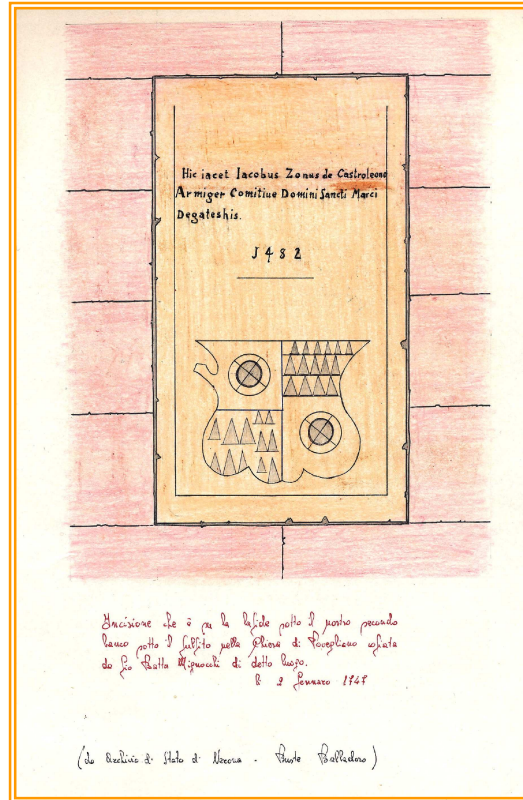 Hic iacet Iacobus Zonus de Castroleono
Armiger Comitiue Domini Sancti Marci
Degateshis.
1482
Incisione che è su la lapide sotto il nostro secondo
banco sotto il pulpito nella Chiesa di Povegliano copiata
da Gio Batta Mignocchi di detto luogo.
li 2 Gennaro 1747
(da Archivio di Stato di Verona - Buste Balladoro)